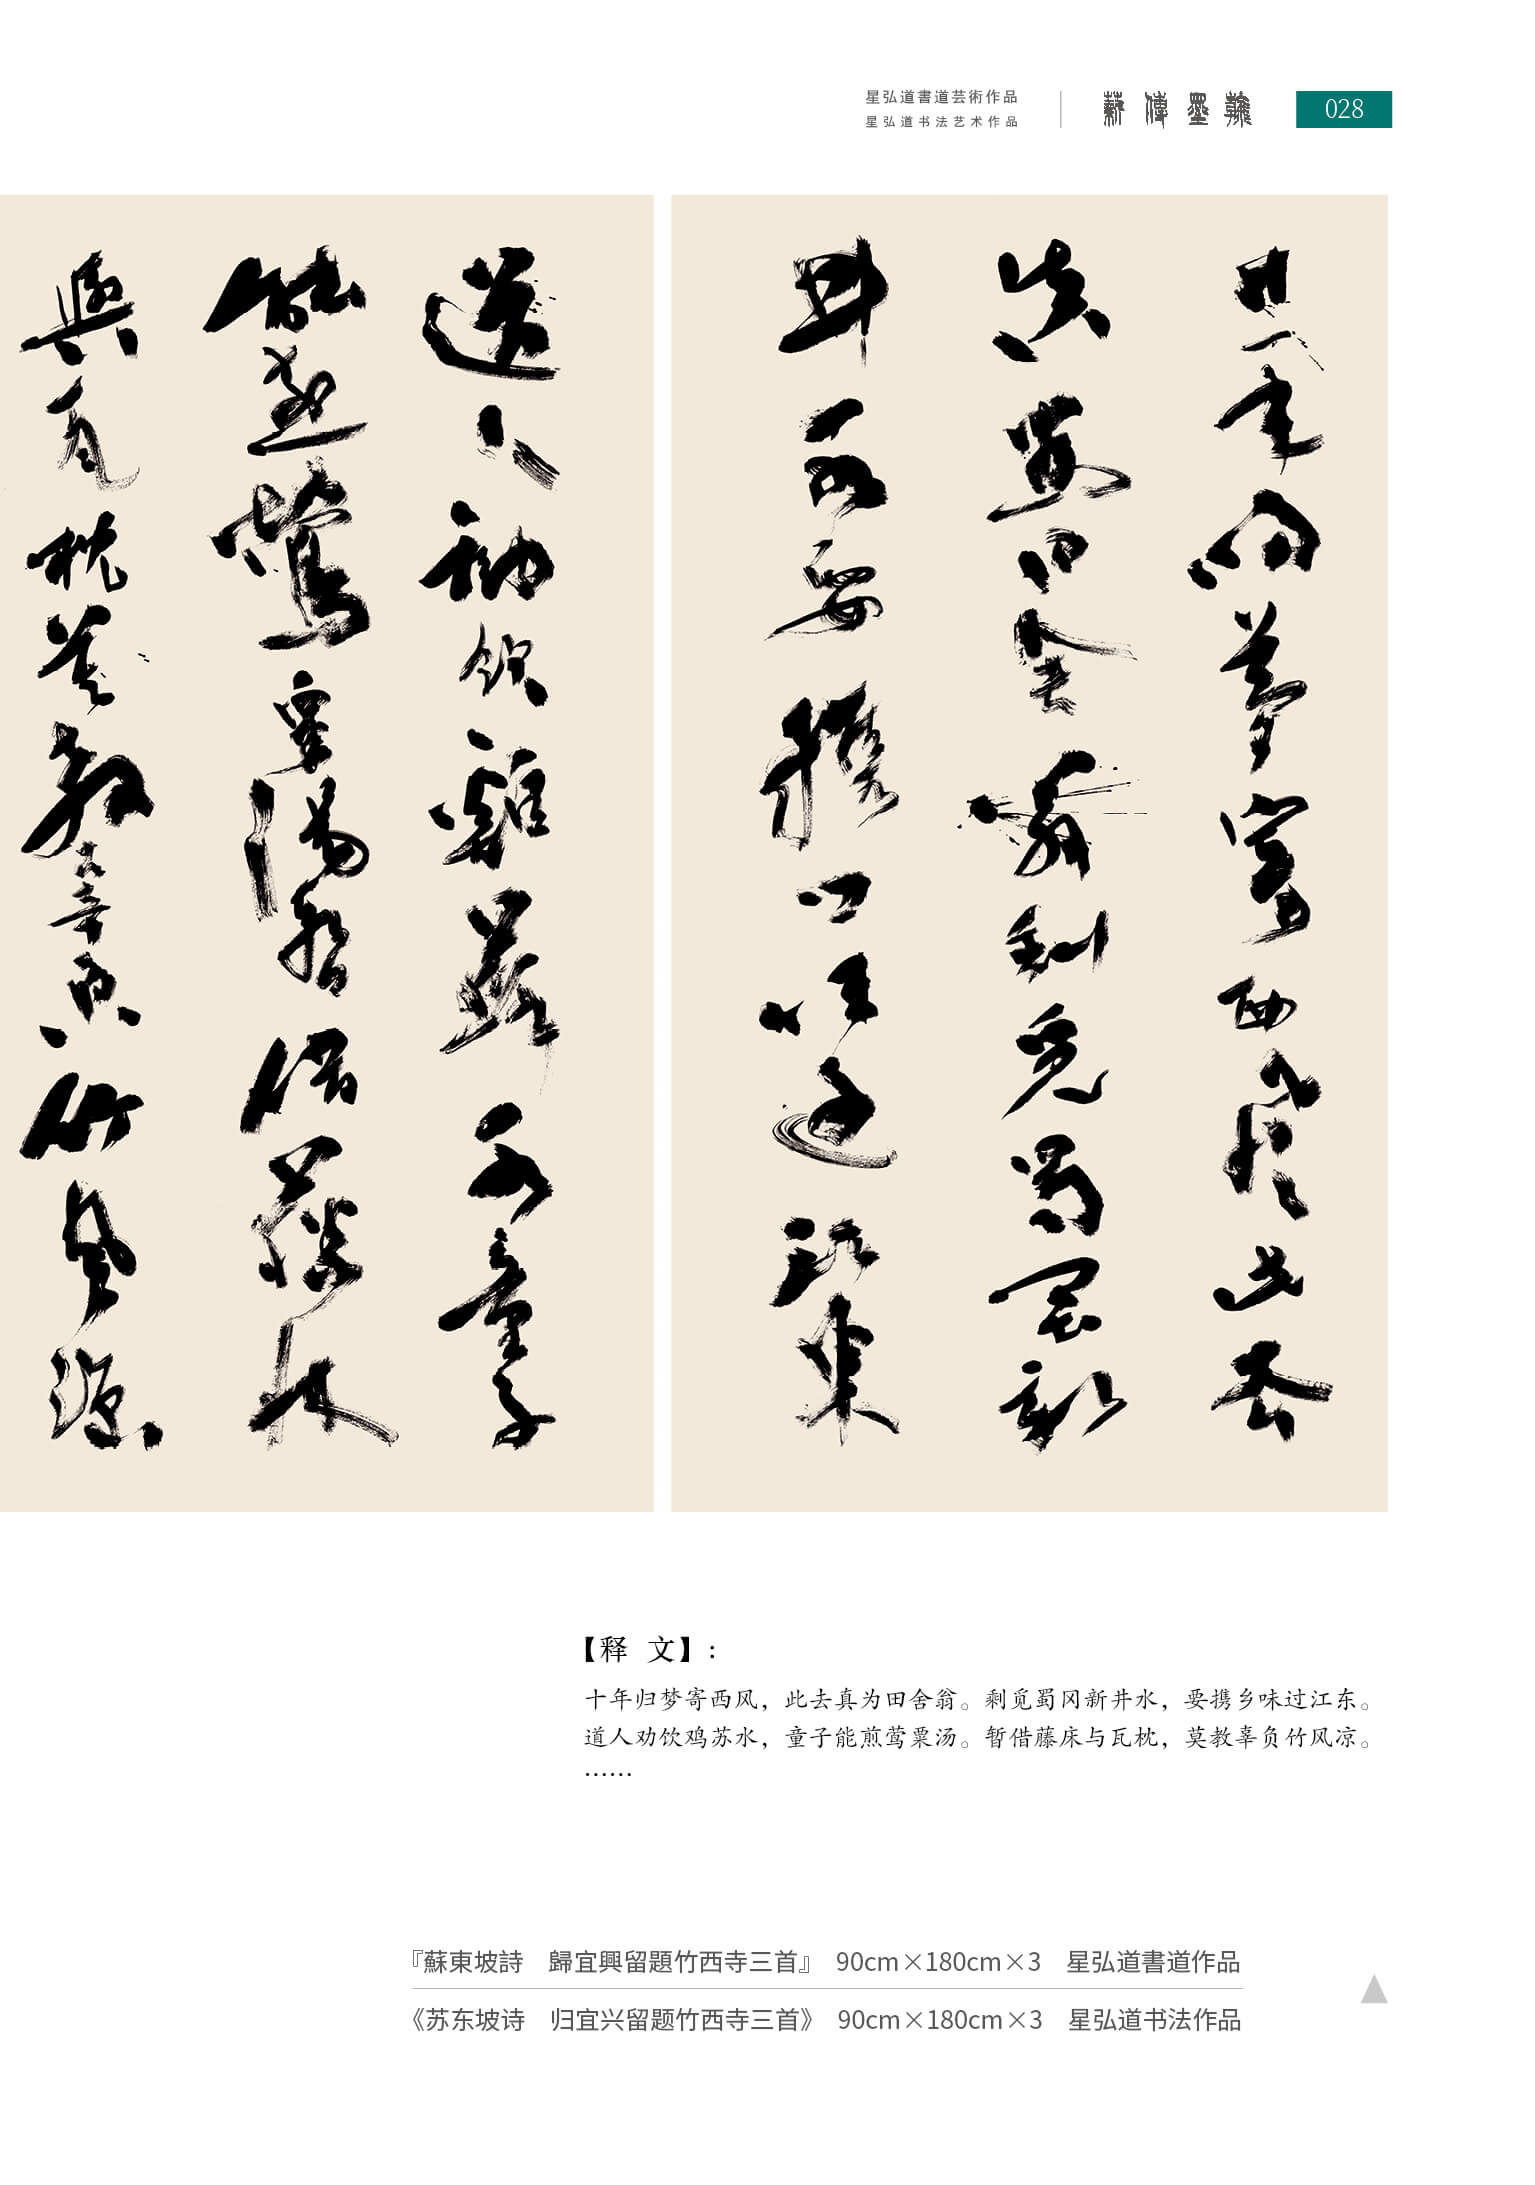 星弘道書道芸術作品
星弘道书法艺术作品
薪傳墨翰
028
十年歸夢寄西風此去
真為田舍翁剩覓蜀岡新
井水要攜鄉味過江東
道人勸飲雞蘇水童子
能煎鶯粟湯暫借藤床
與瓦枕莫教辜負竹風涼
【释 文】:
十年归梦寄西风，此去真为田舍翁。剩觅蜀冈新井水，要携乡味过江东。
道人劝饮鸡苏水，童子能煎莺粟汤。暂借藤床与瓦枕，莫教辜负竹风凉。
……
『蘇東坡詩　歸宜興留題竹西寺三首』 90cm×180cm×3　星弘道書道作品
《苏东坡诗　归宜兴留题竹西寺三首》 90cm×180cm×3　星弘道书法作品